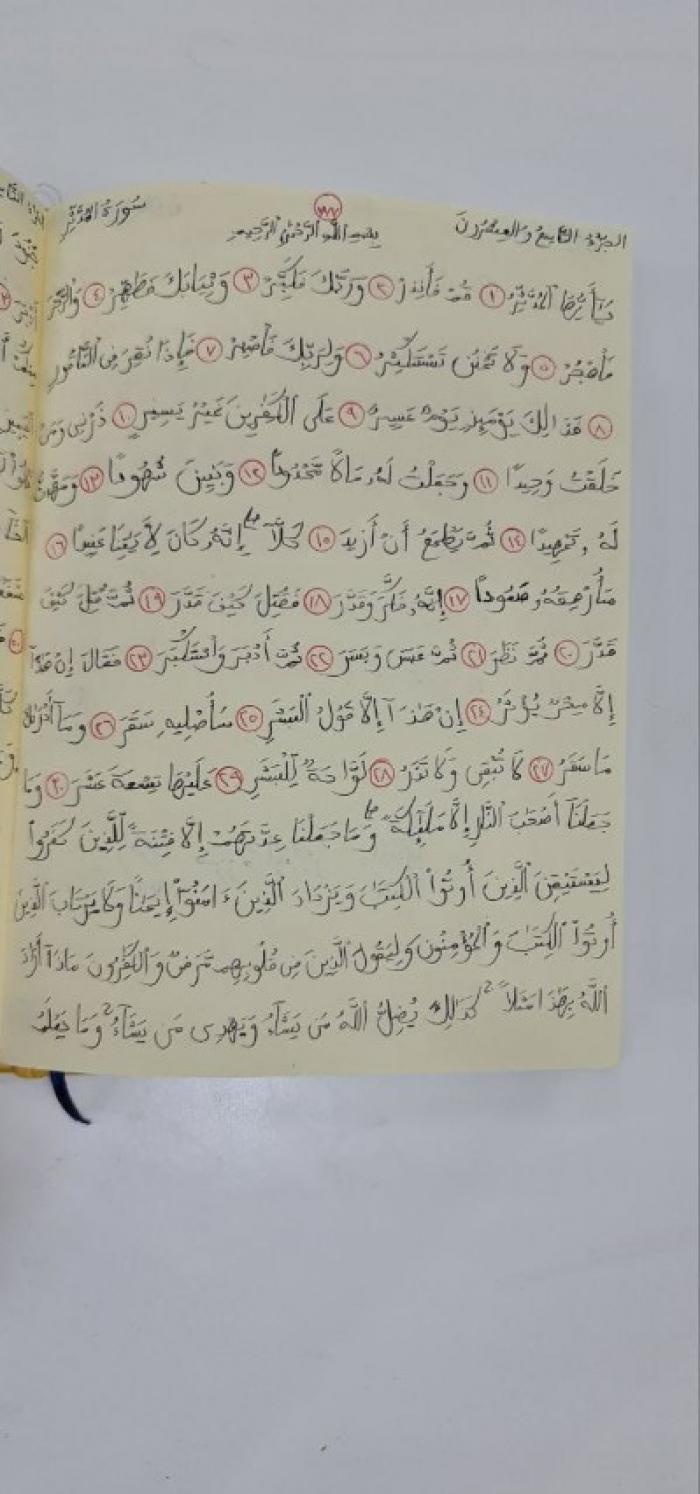 الجزء التاسع والعشرون
سورة المدثر
بسم الله الرحمن الرحيم
يَٰٓأَيُّهَا ٱلْمُدَّثِّرُ ١ قُمْ فَأَنذِرْ ٢ وَرَبَّكَ فَكَبِّرْ ٣ وَثِيَابَكَ فَطَهِّرْ ٤ وَٱلرُّجْزَ
فَٱهْجُرْ ٥ وَلَا تَمْنُن تَسْتَكْثِرُ ٦ وَلِرَبِّكَ فَٱصْبِرْ ٧ فَإِذَا نُقِرَ فِى ٱلنَّاقُورِ
٨ فَذَٰلِكَ يَوْمَئِذٍ يَوْمٌ عَسِيرٌ ٩ عَلَى ٱلْكَٰفِرِينَ غَيْرُ يَسِيرٍ ١٠ ذَرْنِى وَمَنْ
خَلَقْتُ وَحِيدًا ١١ وَجَعَلْتُ لَهُۥ مَالًا مَّمْدُودًا ١٢ وَبَنِينَ شُهُودًا ١٣ وَمَهَّدتُّ
لَهُۥ تَمْهِيدًا ١٤ ثُمَّ يَطْمَعُ أَنْ أَزِيدَ ١٥ كَلَّآ إِنَّهُۥ كَانَ لِأَيَٰتِنَا عَنِيدًا ١٦
سَأُرْهِقُهُۥ صَعُودًا ١٧ إِنَّهُۥ فَكَّرَ وَقَدَّرَ ١٨ فَقُتِلَ كَيْفَ قَدَّرَ ١٩ ثُمَّ قُتِلَ كَيْفَ
قَدَّرَ ٢٠ ثُمَّ نَظَرَ ٢١ ثُمَّ عَبَسَ وَبَسَرَ ٢٢ ثُمَّ أَدْبَرَ وَٱسْتَكْبَرَ ٢٣ فَقَالَ إِنْ هَٰذَآ
إِلَّا سِحْرٌ يُؤْثَرُ ٢٤ إِنْ هَٰذَآ إِلَّا قَوْلُ ٱلْبَشَرِ ٢٥ سَأُصْلِيهِ سَقَرَ ٢٦ وَمَآ أَدْرَىٰكَ
مَا سَقَرُ ٢٧ لَا تُبْقِى وَلَا تَذَرُ ٢٨ لَوَّاحَةٌ لِّلْبَشَرِ ٢٩ عَلَيْهَا تِسْعَةَ عَشَرَ ٣٠ وَمَا
جَعَلْنَآ أَصْحَٰبَ ٱلنَّارِ إِلَّا مَلَٰٓئِكَةً وَمَا جَعَلْنَا عِدَّتَهُمْ إِلَّا فِتْنَةً لِّلَّذِينَ كَفَرُوا۟
لِيَسْتَيْقِنَ ٱلَّذِينَ أُوتُوا۟ ٱلْكِتَٰبَ وَيَزْدَادَ ٱلَّذِينَ ءَامَنُوٓا۟ إِيمَٰنًا وَلَا يَرْتَابَ ٱلَّذِينَ
أُوتُوا۟ ٱلْكِتَٰبَ وَٱلْمُؤْمِنُونَ وَلِيَقُولَ ٱلَّذِينَ فِى قُلُوبِهِم مَّرَضٌ وَٱلْكَٰفِرُونَ مَاذَآ أَرَادَ
ٱللَّهُ بِهَٰذَا مَثَلًا كَذَٰلِكَ يُضِلُّ ٱللَّهُ مَن يَشَآءُ وَيَهْدِى مَن يَشَآءُ وَمَا يَعْلَمُ